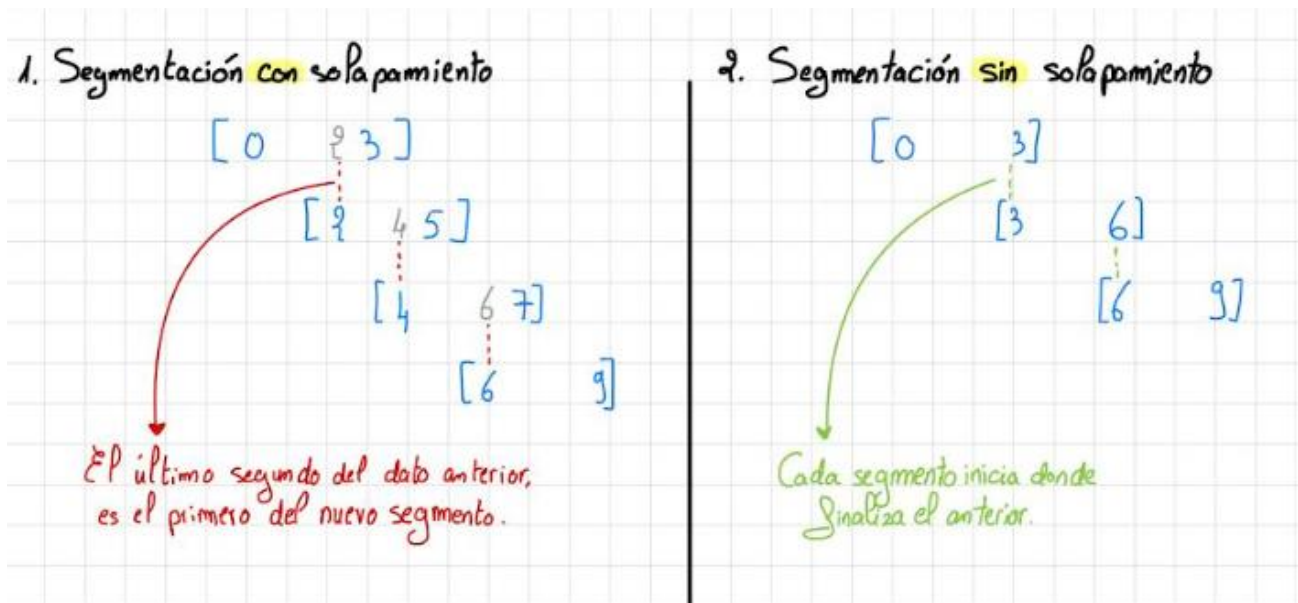 1. Segmentación con solapamiento
[ 0 2 3 ]
[ 2 4 5 ]
[ 4 6 7 ]
[ 6 9 ]
El último segundo del dato anterior,
es el primero del nuevo segmento.
2. Segmentación sin solapamiento
[ 0 3 ]
[ 3 6 ]
[ 6 9 ]
Cada segmento inicia donde
finaliza el anterior.